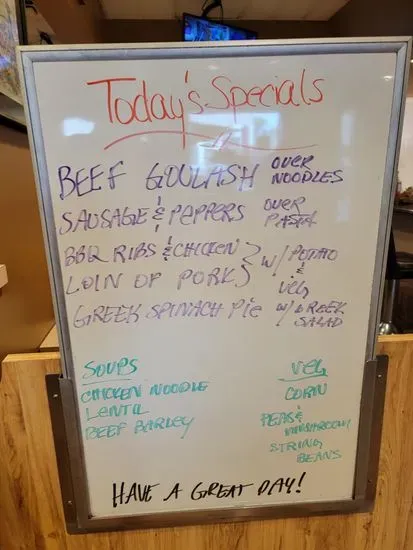 Today's Specials
BEEF GOULASH OVER NOODLES
SAUSAGE & PEPPERS OVER PASTA
BBQ RIBS & CHICKEN
LOIN OF PORK
W/ POTATO & VEG
GREEK SPINACH PiE W/ GREEK SALAD
SOUPS
CHICKEN NOODLE
LENTIL
BEEF BARLEY
VEG
CORN
PEAS & MUSHROOM
STRING BEANS
HAVE A GREAT DAY!